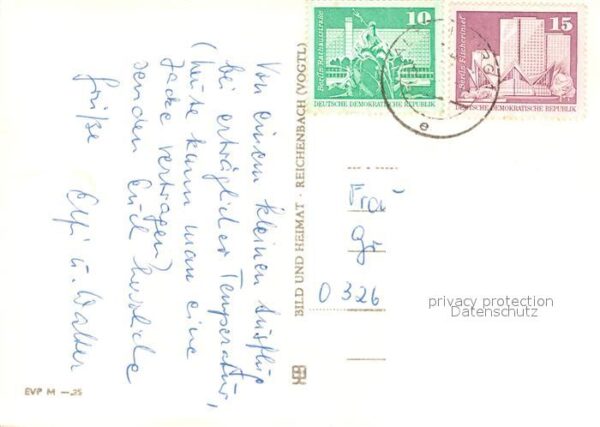 Von einem kleinen Ausflug
bei erträglicher Temperatur,
(heute kann man eine
Jacke vertragen)
senden Euch herzliche
Grüße Elfi u. Walter
EVP M —,25
BILD UND HEIMAT · REICHENBACH (VOGTL)
10
Berlin, Rathausstraße
DEUTSCHE DEMOKRATISCHE REPUBLIK
15
Berlin, Fischerinsel
DEUTSCHE DEMOKRATISCHE REPUBLIK
e
Frau
Gr
0326
privacy protection
Datenschutz